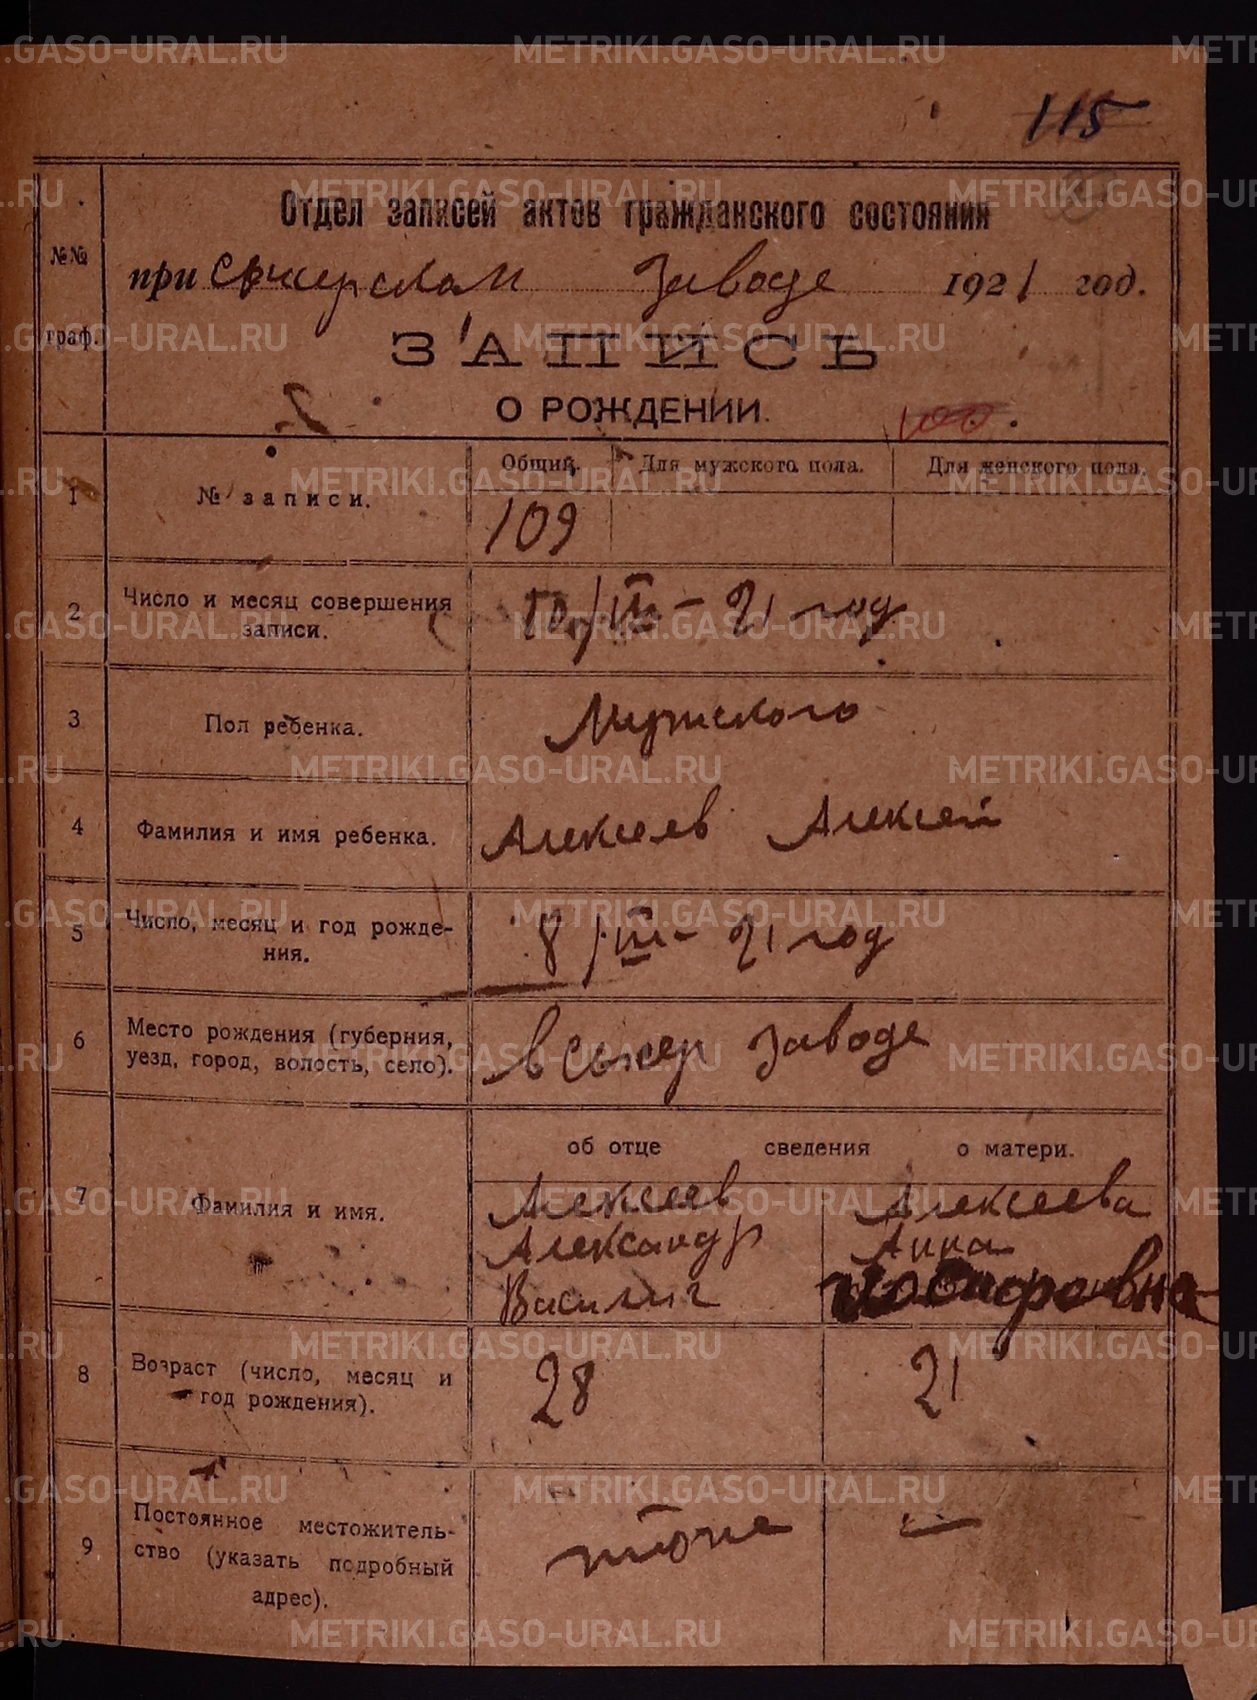 115
Отдел записей актов гражданского состояния
при Сысерском Заводе 1921 год.
№№ граф.
ЗАПИСЬ
О РОЖДЕНИИ.
100
Общий. Для мужского пола. Для женского пола.
1 № записи. 109
2 Число и месяц совершения записи. 10/III - 21 год
3 Пол ребенка. Мужского
4 Фамилия и имя ребенка. Алексеев Алексей
5 Число, месяц и год рождения. 8/III - 21 год
6 Место рождения (губерния, уезд, город, волость, село). в Сысер Заводе
об отце сведения о матери.
7 Фамилия и имя.
Алексеев Алексеева
Александр Анна
Василич
8 Возраст (число, месяц и год рождения). 28 21
9 Постоянное местожительство (указать подробный адрес). тоже
METRIKI.GASO-URAL.RU